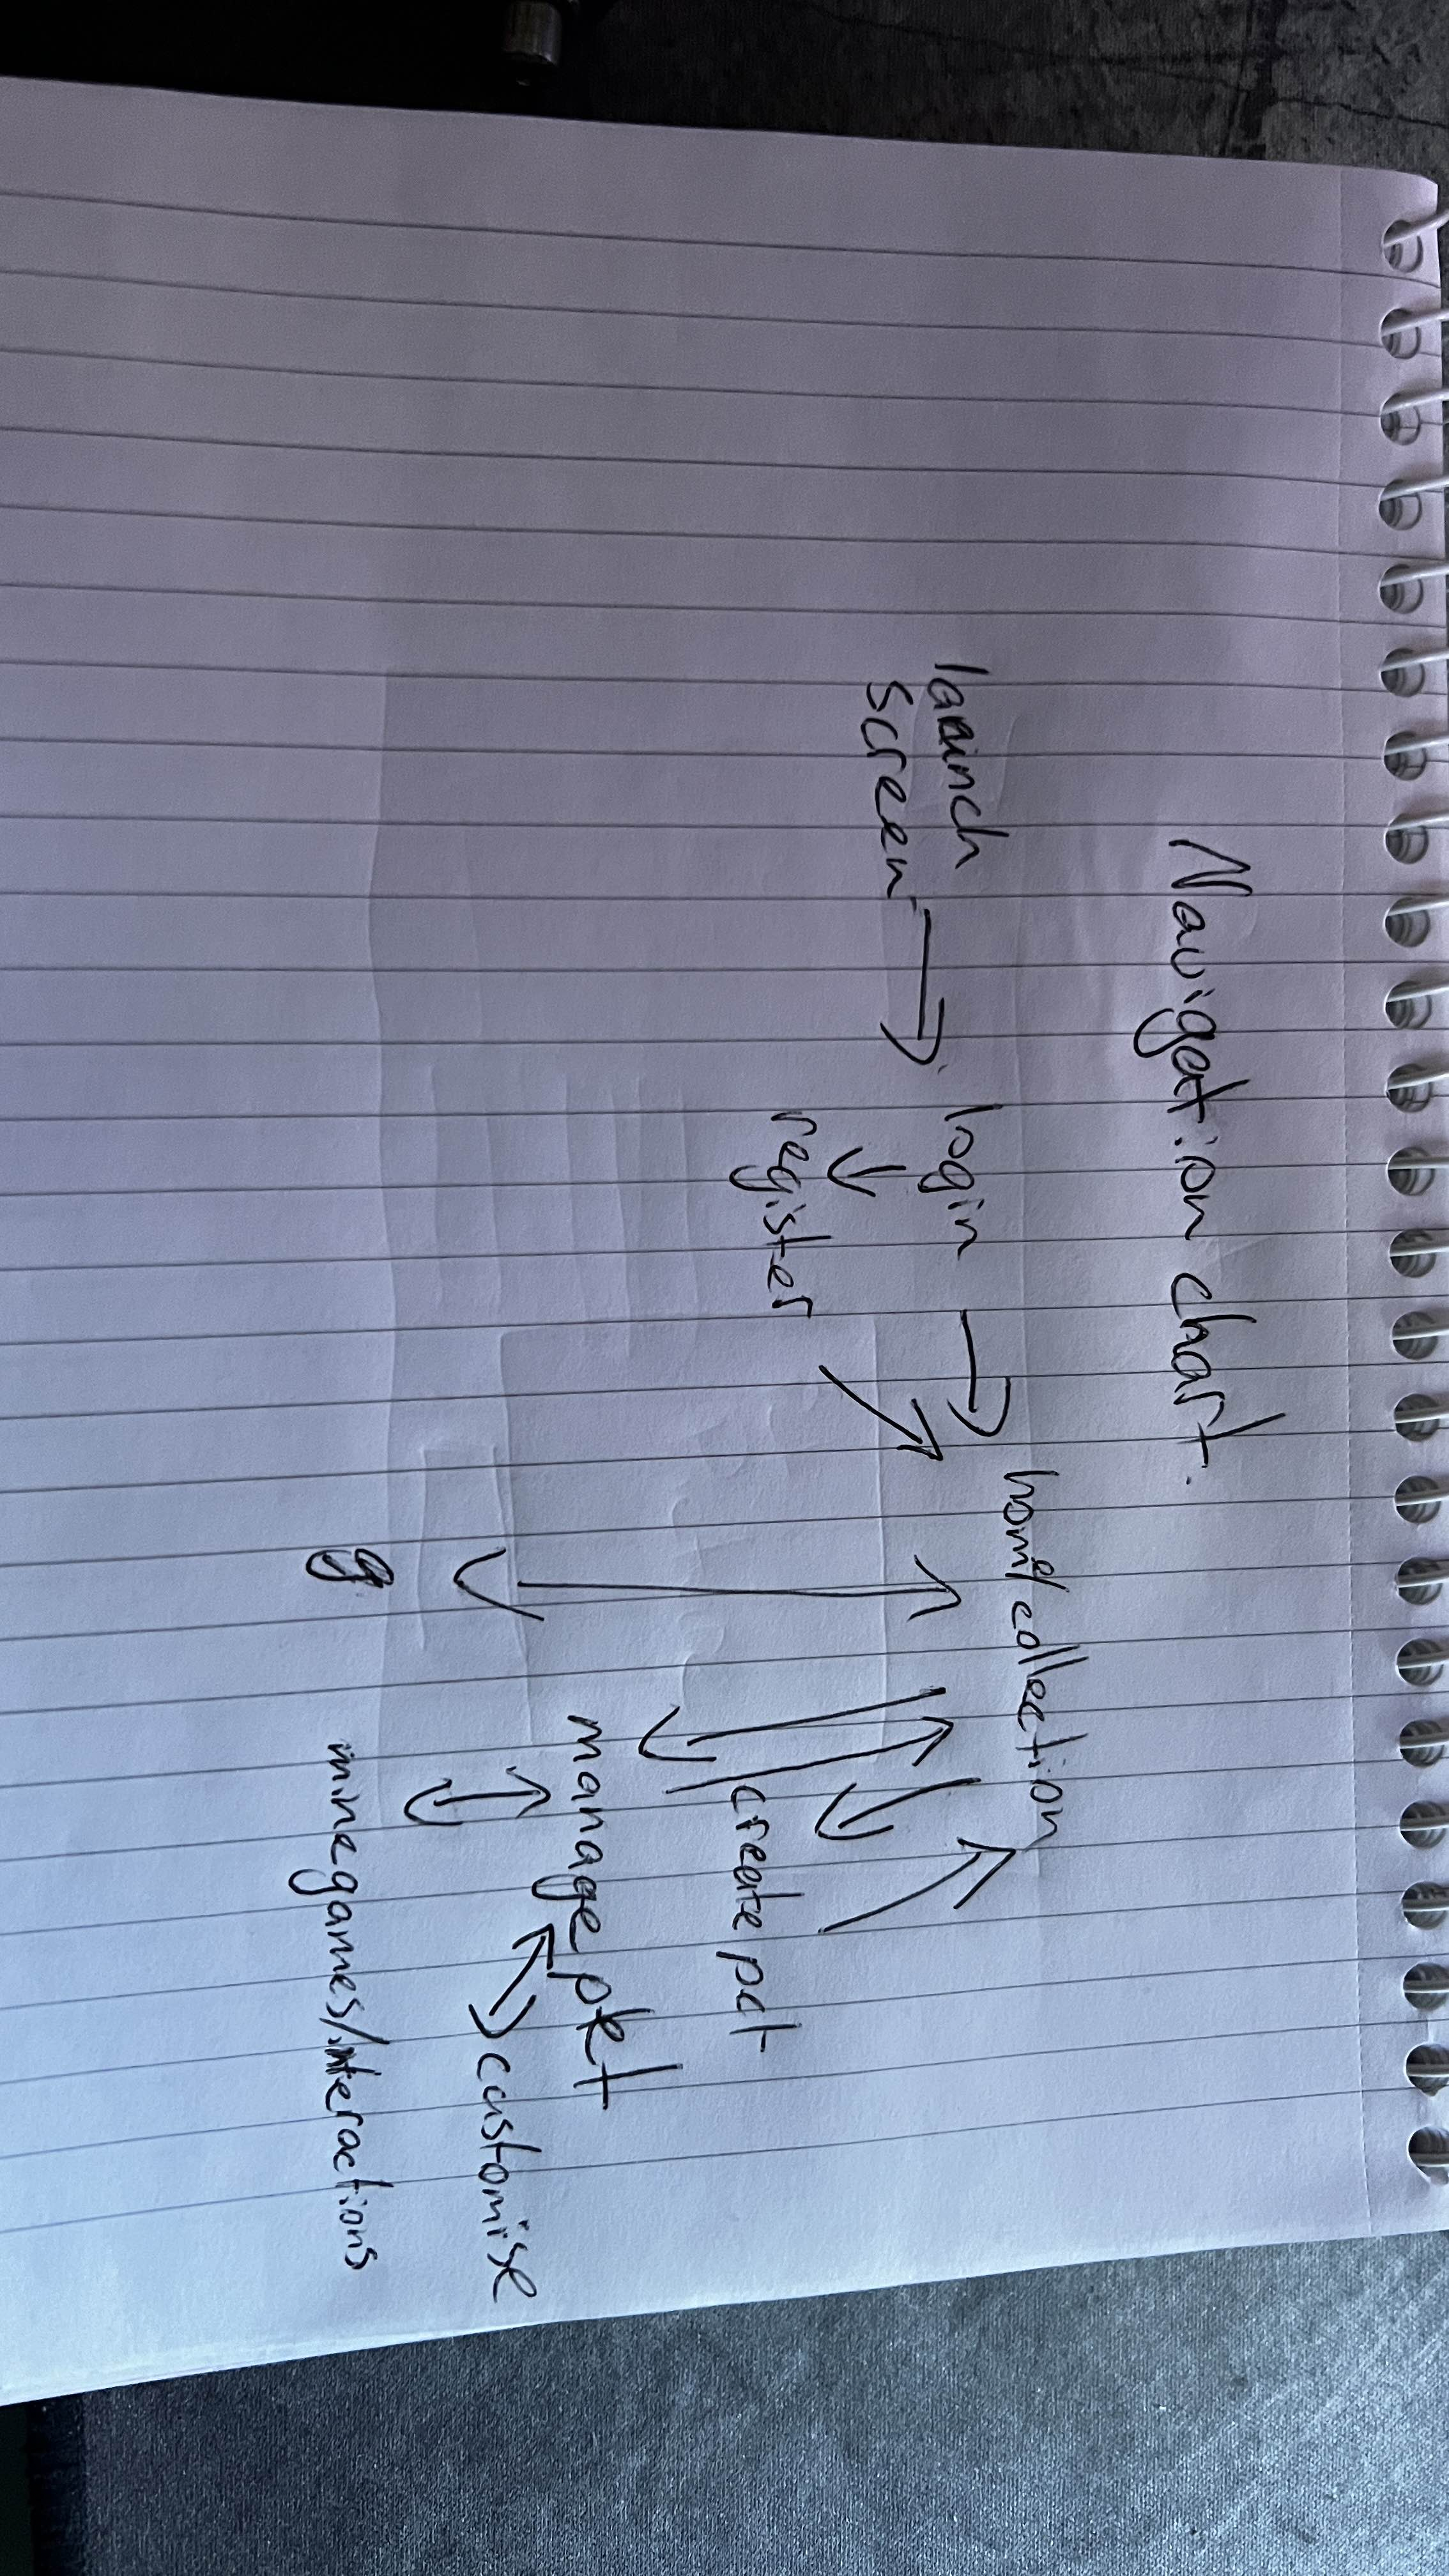 Navigation chart.
launch
screen
login
home/collection
register
create pet
manage pet
customise
g
minegames/interactions